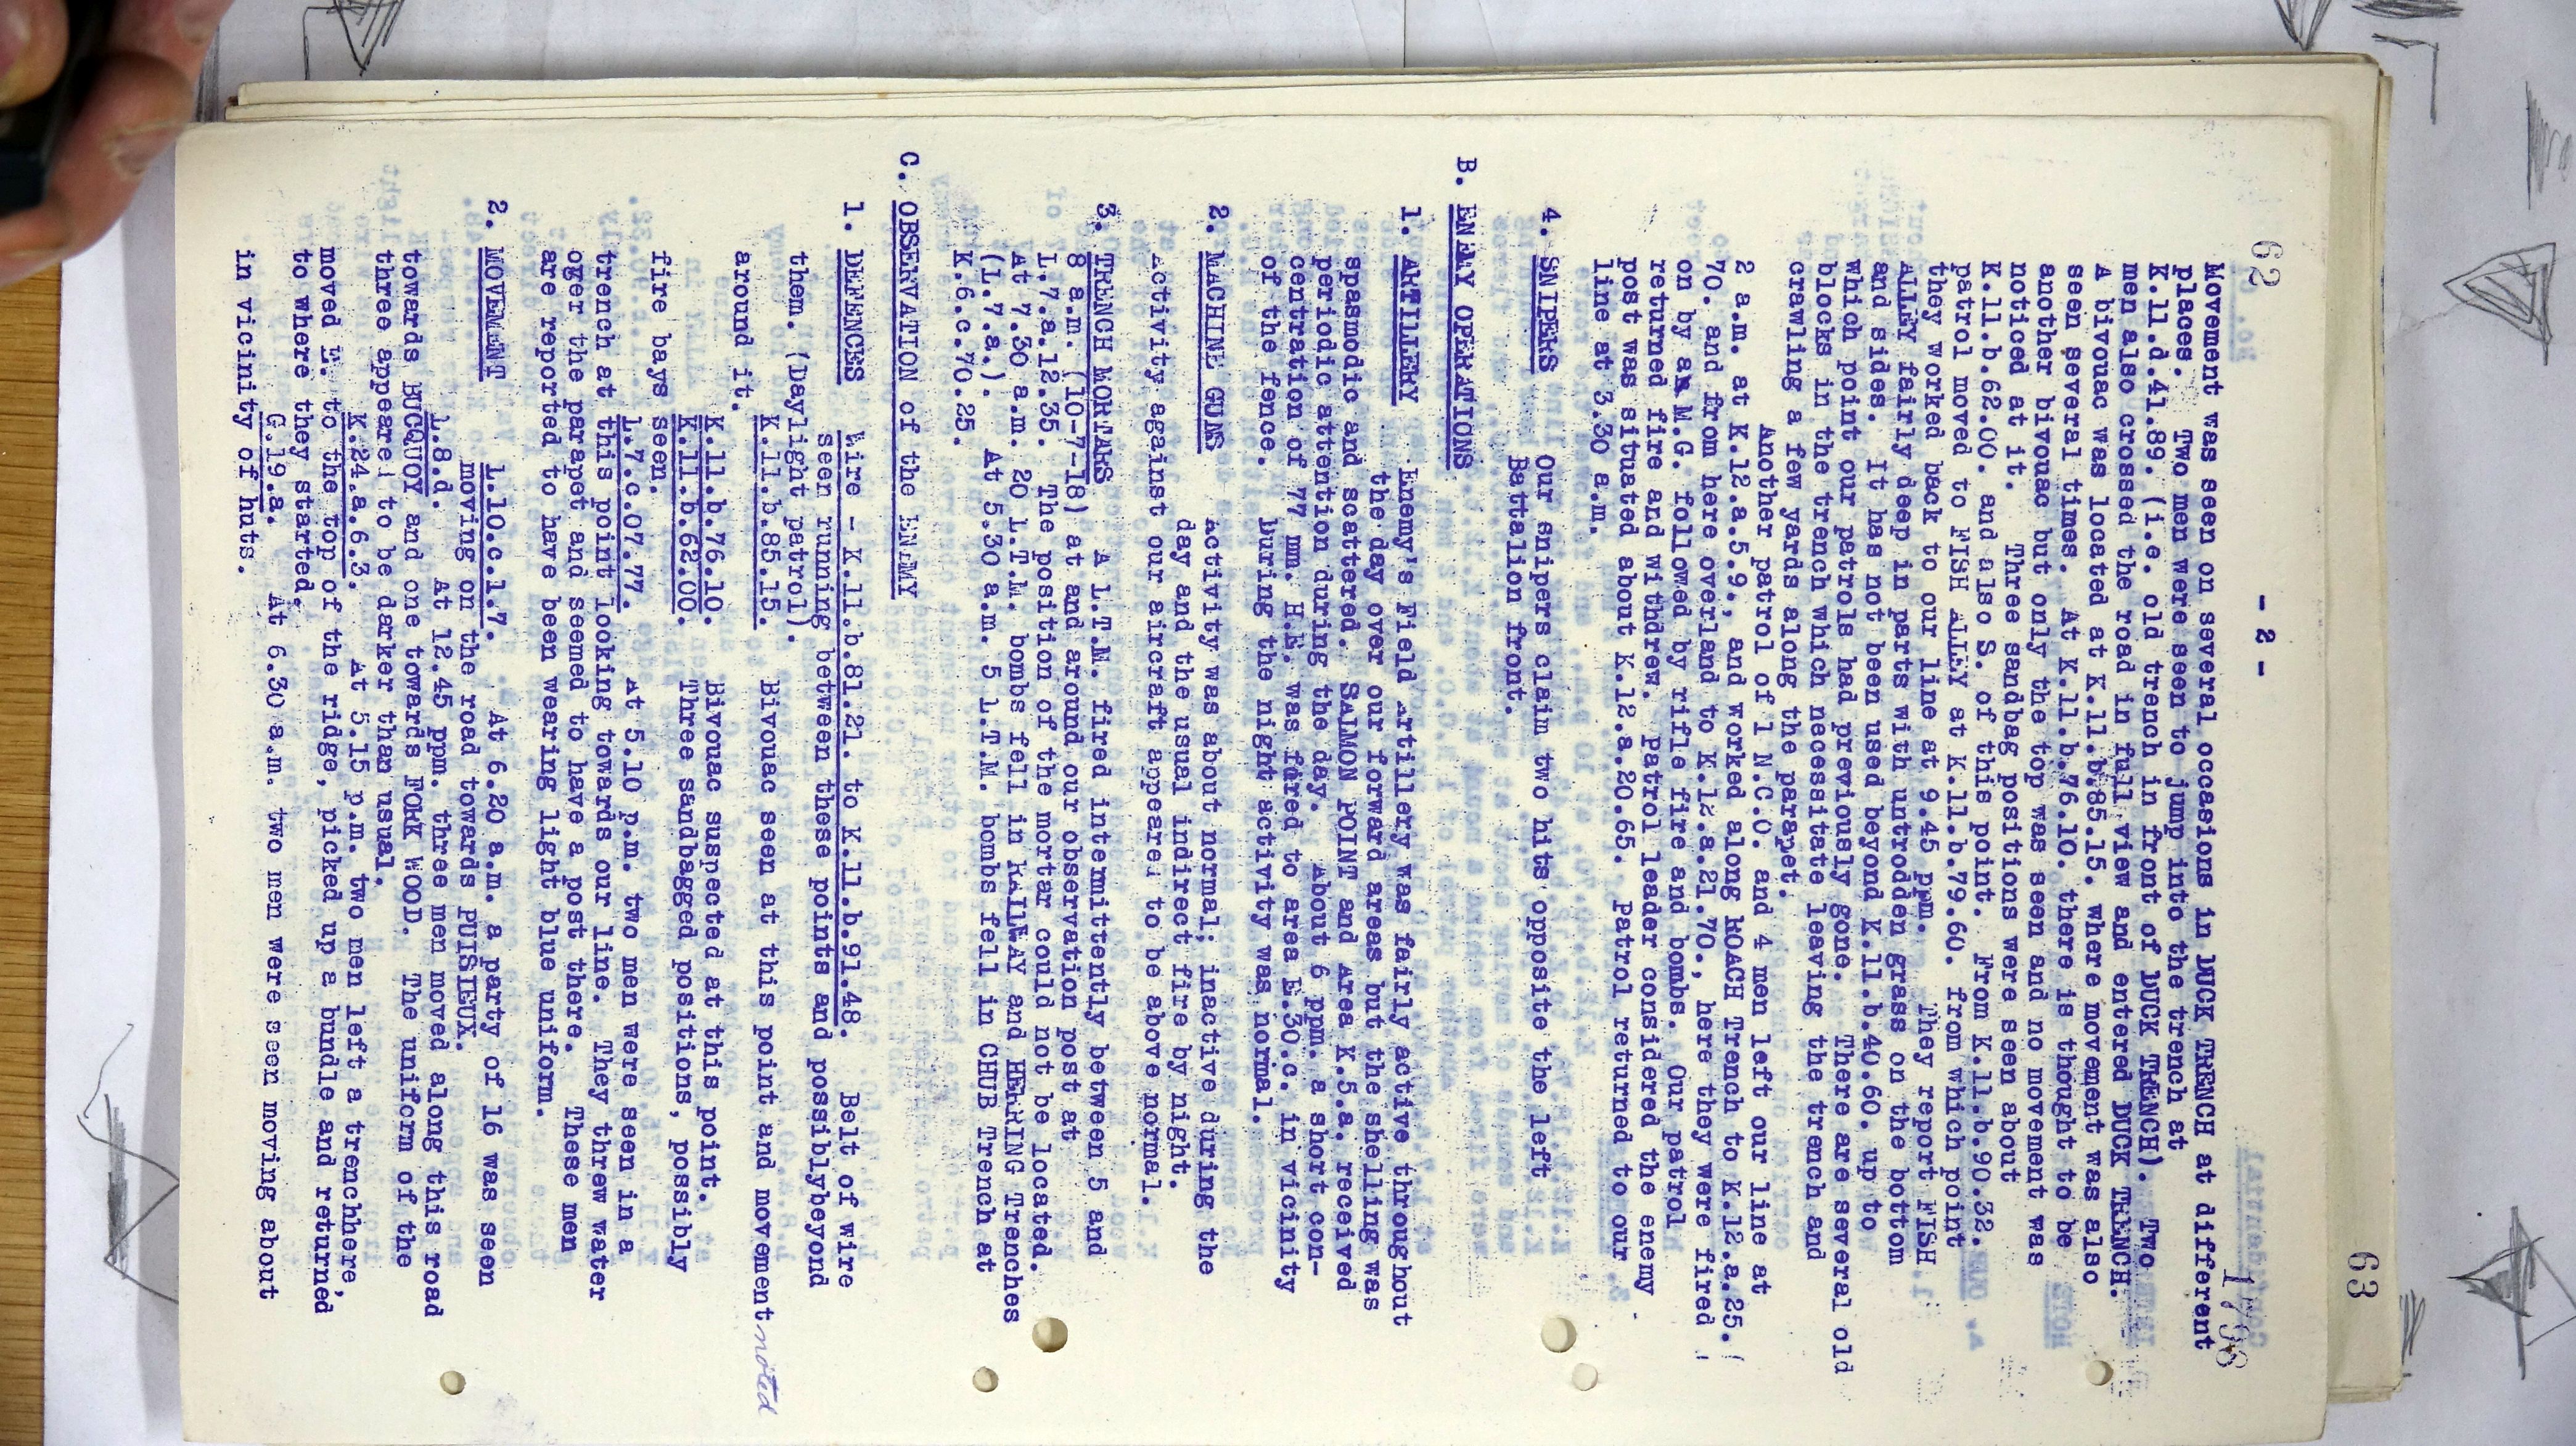 62
- 2 -
63
1798
Movement was seen on several occasions in DUCK TRENCH at different
places. Two men were seen to jump into the trench at
K.11.d.41.89. (i.e. old trench in front of DUCK TRENCH). Two
men also crossed the road in full view and entered DUCK TRENCH.
A bivouac was located at K.11.b.85.15. where movement was also
seen several times. At K.11.b.76.10. there is thought to be
another bivouac but only the top was seen and no movement was
noticed at it. Three sandbag positions were seen about
K.11.b.62.00. and also S. of this point. From K.11.b.90.32.
patrol moved to FISH ALLEY at K.11.b.79.60. from which point
they worked back to our line at 9.45 p.m. They report FISH
ALLEY fairly deep in parts with untrodden grass on the bottom
and sides. It has not been used beyond K.11.b.40.60. up to
which point our patrols had previously gone. There are several old
blocks in the trench which necessitate leaving the trench and
crawling a few yards along the parapet.
Another patrol of 1 N.C.O. and 4 men left our line at
2 a.m. at K.12.a.5.9., and worked along ROACH Trench to K.12.a.25.
70. and from here overland to K.12.a.21.70., here they were fired
on by an M.G. followed by rifle fire and bombs. Our patrol
returned fire and withdrew. Patrol leader considered the enemy
post was situated about K.12.a.20.65. Patrol returned to our
line at 3.30 a.m.
4. SNIPERS Our snipers claim two hits opposite the left
Battalion front.
B. ENEMY OPERATIONS
1. ARTILLERY Enemy's Field Artillery was fairly active throughout
the day over our forward areas but the shelling was
spasmodic and scattered. SALMON POINT and Area K.5.a. received
periodic attention during the day. About 6 ppm. a short con-
centration of 77 mm. H.E. was fired to area E.30.c. in vicinity
of the fence. During the night activity was normal.
2. MACHINE GUNS Activity was about normal; inactive during the
day and the usual indirect fire by night.
Activity against our aircraft appeared to be above normal.
3. TRENCH MORTARS A L.T.M. fired intermittently between 5 and
8 a.m. (10-7-18) at and around our observation post at
L.7.a.12.35. The position of the mortar could not be located.
At 7.30 a.m. 20 L.T.M. bombs fell in RAILWAY and HERRING Trenches
(L.7.a.). At 5.30 a.m. 5 L.T.M. bombs fell in CHUB Trench at
K.6.c.70.25.
C. OBSERVATION of the ENEMY
1. DEFENCES Wire - K.11.b.81.21. to K.11.b.91.48. Belt of wire
seen running between these points and possiblybeyond
them. (Daylight patrol).
K.11.b.85.15. Bivouac seen at this point and movement noted
around it.
K.11.b.76.10. Bivouac suspected at this point.
K.11.b.62.00. Three sandbagged positions, possibly
fire bays seen.
L.7.c.07.77. At 5.10 p.m. two men were seen in a
trench at this point looking towards our line. They threw water
over the parapet and seemed to have a post there. These men
are reported to have been wearing light blue uniform.
2. MOVEMENT L.10.c.1.7. At 6.20 a.m. a party of 16 was seen
moving on the road towards PUISIEUX.
L.8.d. At 12.45 ppm. three men moved along this road
towards BUCQUOY and one towards FORK WOOD. The uniform of the
three appeared to be darker than usual.
K.24.a.6.3. At 5.15 p.m. two men left a trenchhere,
moved E. to the top of the ridge, picked up a bundle and returned
to where they started.
G.19.a. At 6.30 a.m. two men were seen moving about
in vicinity of huts.